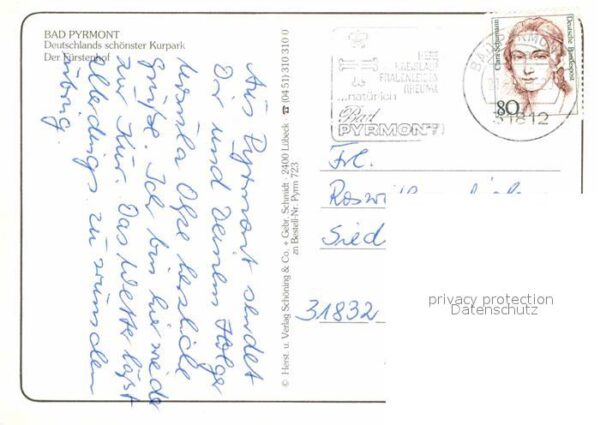 BAD PYRMONT
Deutschlands schönster Kurpark
Der Fürstenhof
Aus Pyrmont sendet
Dir und Deinem Holger
Ursula Ope herzliche
Grüße. Ich bin hier wieder
zur Kur. Das Wetter lässt
allerdings zu wünschen
übrig.
© Herst. u. Verlag Schöning & Co. + Gebr. Schmidt · 2400 Lübeck · ☎ (04 51) 310 310 0
zu Bestell-Nr. Pyrm 723
HERZ
KREISLAUF
FRAUENLEIDEN
RHEUMA
...natürlich
Bad
PYRMONT
BAD PYRMONT
31812
Clara Schumann
Deutsche Bundespost
80
Frl.
Sied
31832
privacy protection
Datenschutz